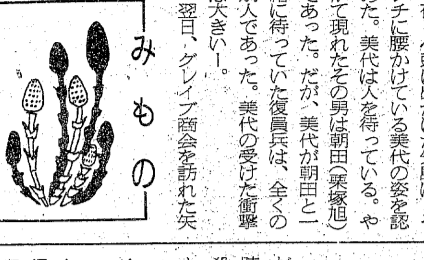 チに腰かけている美代の姿を認
た。美代は人を待っている。や
て現れたその男は朝田(栗塚旭)
であった。だが、美代が朝田と一
緒に待っていた復員兵は、全くの
別人であった。美代の受けた衝撃
は大きい―。
翌日、グレイブ商会を訪れた矢
みもの